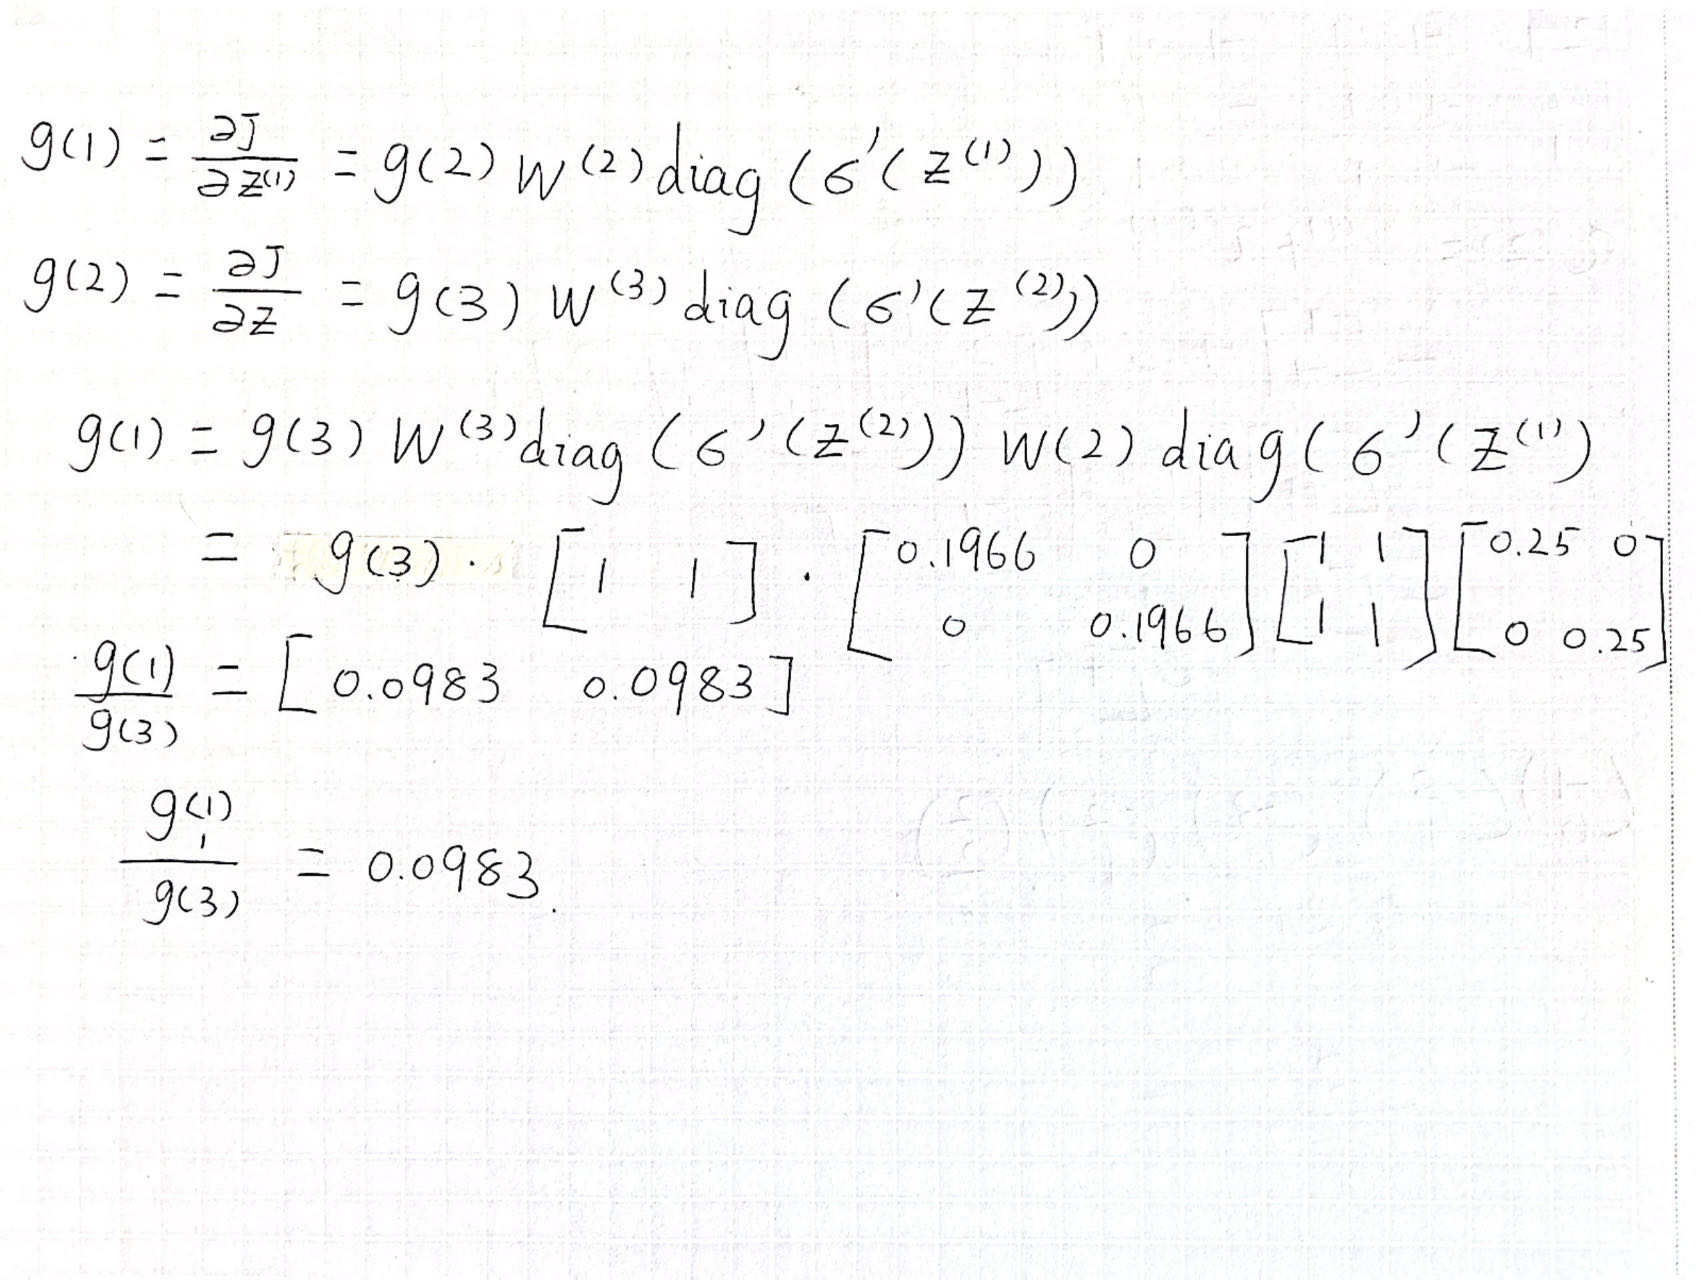 g(1) = ∂J/∂z⁽¹⁾ = g(2) W⁽²⁾ diag (σ'(z⁽¹⁾))
g(2) = ∂J/∂z = g(3) W⁽³⁾ diag (σ'(z⁽²⁾))
g(1) = g(3) W⁽³⁾ diag (σ'(z⁽²⁾)) W(2) diag (σ'(z⁽¹⁾)
= g(3) · [1 1] · [0.1966 0; 0 0.1966] [1 1; 1 1] [0.25 0; 0 0.25]
g(1)/g(3) = [0.0983 0.0983]
g(1)₁/g(3) = 0.0983.